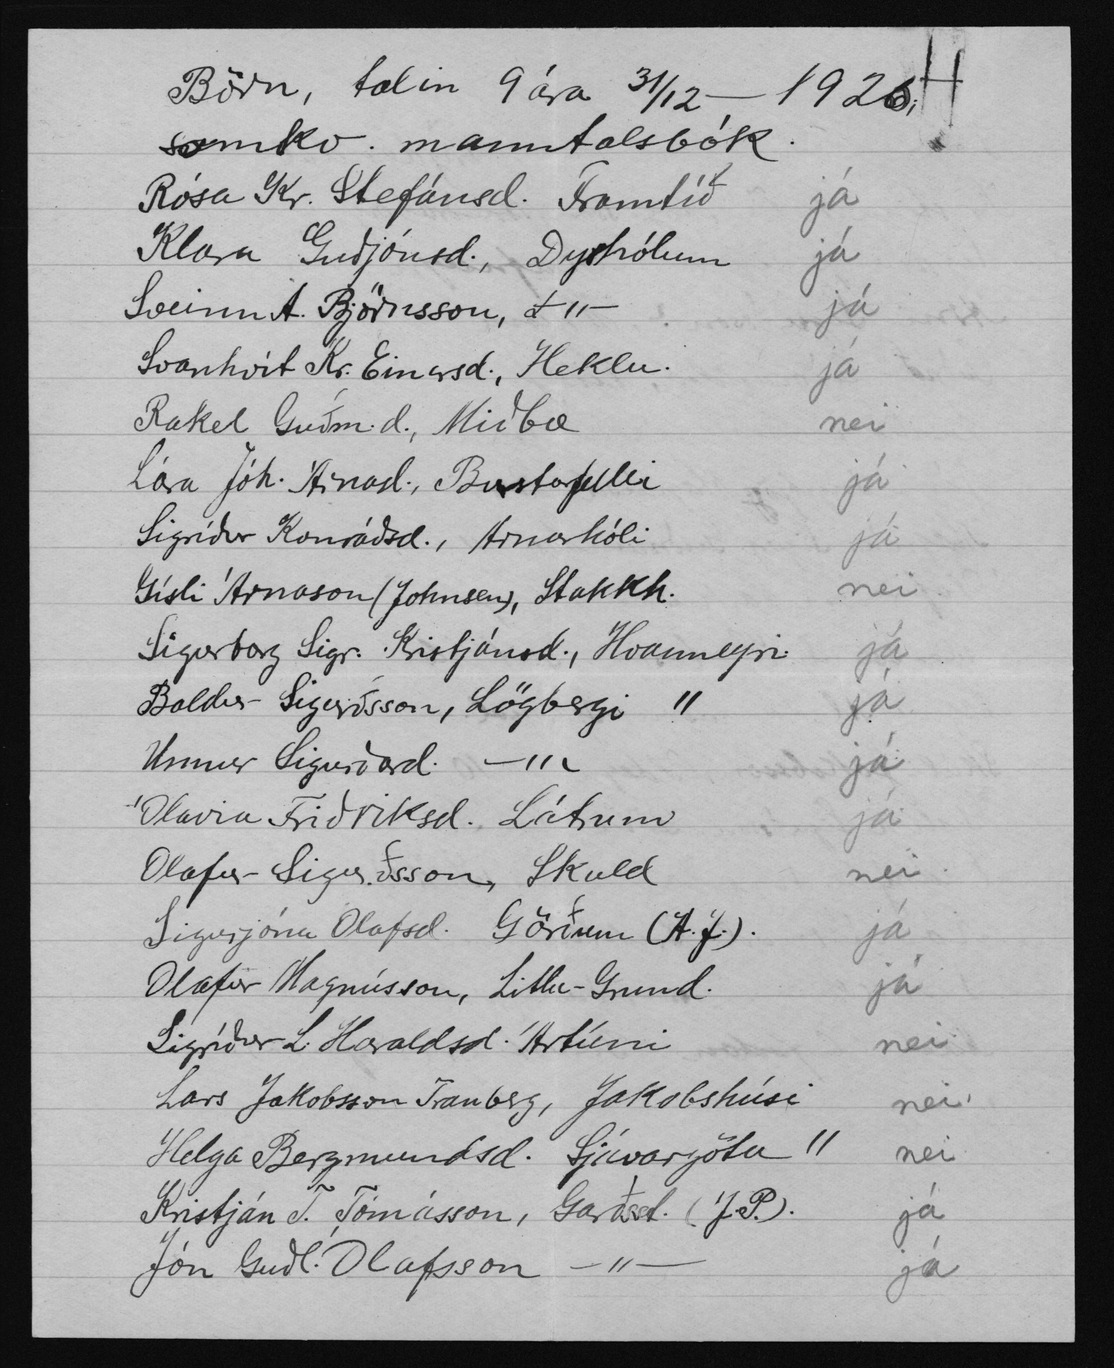 Börn, talin 9 ára 31/12 — 1926, H
samkv. manntalsbók.
Rósa Kr. Stefánsd. Framtíð já
Klara Guðjónsd., Dyrhólum já
Sveinn A. Björnsson, —"— já
Svanhvít Kr. Einarsd., Heklu. já
Rakel Guðm.d., Miðbæ nei
Lára Jóh. Árnad., Burstafelli já
Sigríður Konráðsd., Arnarhóli já
Gísli Árnason (Johnsen), Stakkh. nei
Sigurborg Sigr. Kristjánsd., Hvanneyri já
Baldur Sigurðsson, Lögbergi " já
Unnur Sigurðard. —"— já
Ólavia Friðriksd. Látrum já
Olafur Sigurðsson, Skuld nei
Sigurjóna Olafsd. Görðum (A.J.). já
Olafur Magnússon, Litlu-Grund. já
Sigríður L. Haraldsd. Ártúni nei
Lars Jakobsson Tranberg, Jakobshúsi nei
Helga Bergmundsd. Sjávargötu " nei
Kristján T. Tómásson, Garðsst. (J.P.). já
Jón Guðl. Ólafsson —"— já